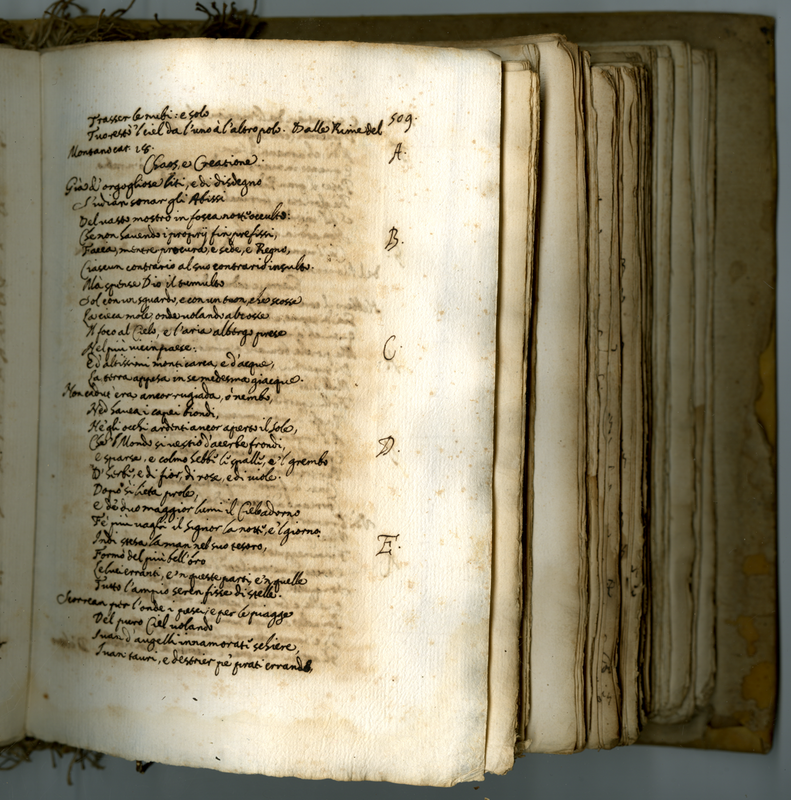 Trasser le nubi: e solo
Tuo restò 'l ciel da l'uno à l'altro polo. Dalle Rime del 509.
Montano cat. 18. A.
Chaos, e Creatione.
Già d'orgogliose liti, e di disdegno
S'udian sonar gli Abissi
Del vasto mostro in fosca notte occulto:
Che non havendo i proprij fin prefissi, B.
Facea, mentre procura, e sede, e Regno,
Ciascun contrario al suo contrario insulto.
Mà spense Dio il tumulto
Sol con un sguardo, e con un tuon, che scosse
La cieca mole, onde volando
Il foco al Cielo, e l'aria albergo prese
Nel più vicin paese. C.
E d'altissimi monti carca, e d'acque,
La terra appesa in se medesma giacque.
Non caduta era ancor rugiada, ò nembo,
Ned havea i capei biondi,
Nè gli occhi ardenti ancor aperto il Sole,
Che 'l Mondo si vestio d'acerbe frondi, D.
e sparse, e colmo hebbe le spalle, e 'l grembo
D'herbe, e di fior, di rose, e di viole.
Dopò sì lieta prole,
e de duo maggior lumi il Ciel adorno
Fè più vaghi il Signor la notte, e 'l giorno.
Indi stesa la man nel suo tesoro, E.
Formò del più bell'oro
Le luci erranti, e 'n queste parti, e 'n quelle
Tutto l'ampio seren fisse di stelle.
Scorrean per l'onde i pesci, e per le piagge
Del puro Ciel volando
Ivan d'augelli innamorate schiere,
Ivan tauri, e destrier pe' prati errando,